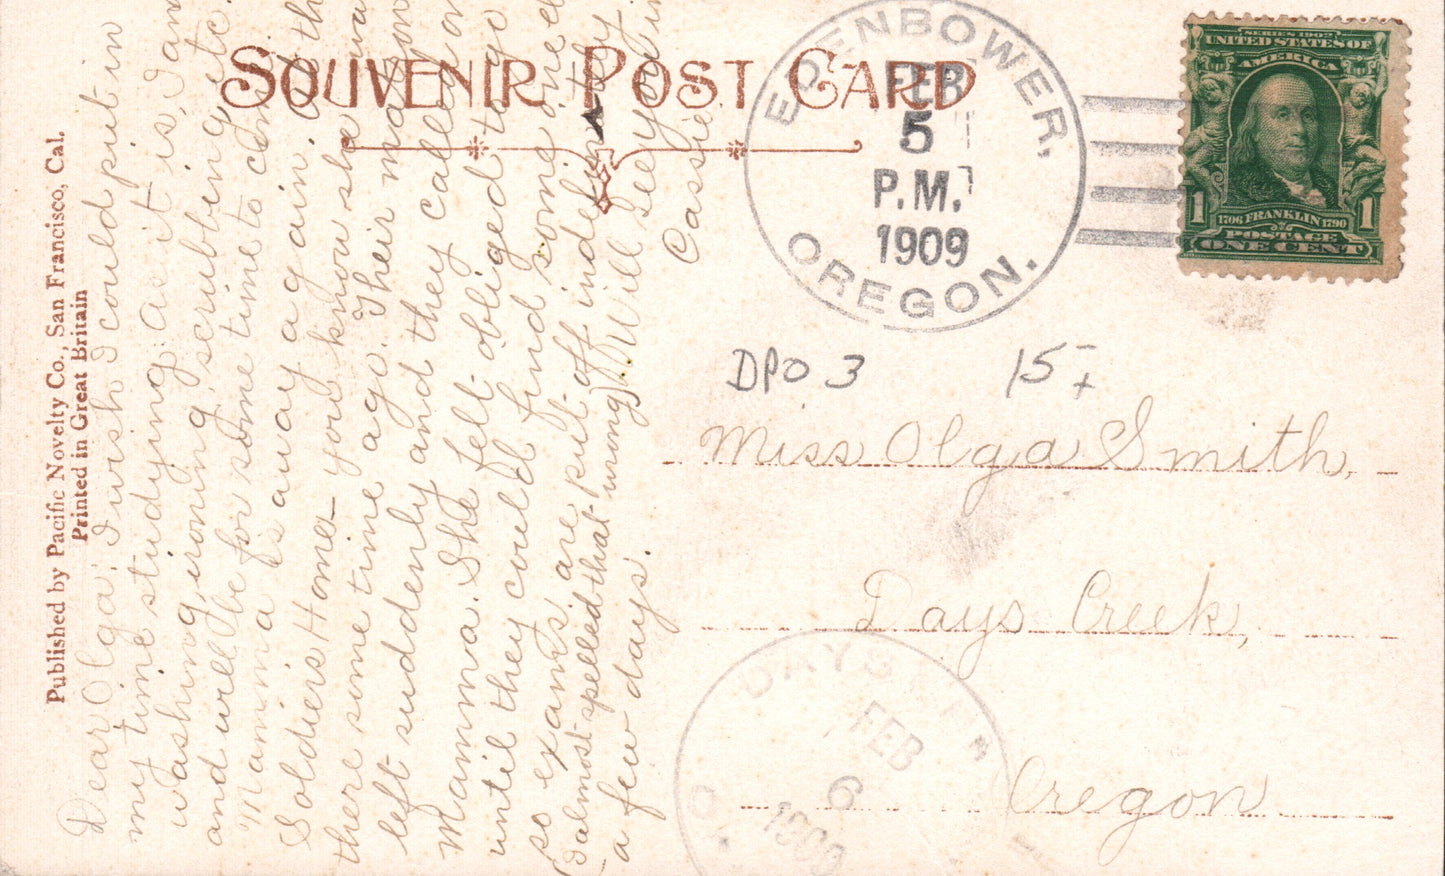 SOUVENIR POST CARD
EDENBOWER,
FEB
5
P.M.
1909
OREGON.
SERIES 1902
UNITED STATES OF
AMERICA
1 1706 FRANKLIN 1790 1
POSTAGE
ONE CENT
DPO 3 15-
Miss Olga Smith,
Days Creek,
Oregon
DAYS
FEB
6
1909
Published by Pacific Novelty Co., San Francisco, Cal.
Printed in Great Britain
Dear Olga: I wish I could put in
my time studying as it is, I am
washing, ironing, scrubbing etc.
and will be for some time to come.
Mamma is away again. At the
Soldiers Home - you know she was
there some time ago. Their matron
left suddenly and they called on
Mamma. She felt obliged to go
until they could find some one else
so exams are put off indefinitely
(almost spelled that wrong) Will see you in
a few days.
Cassie